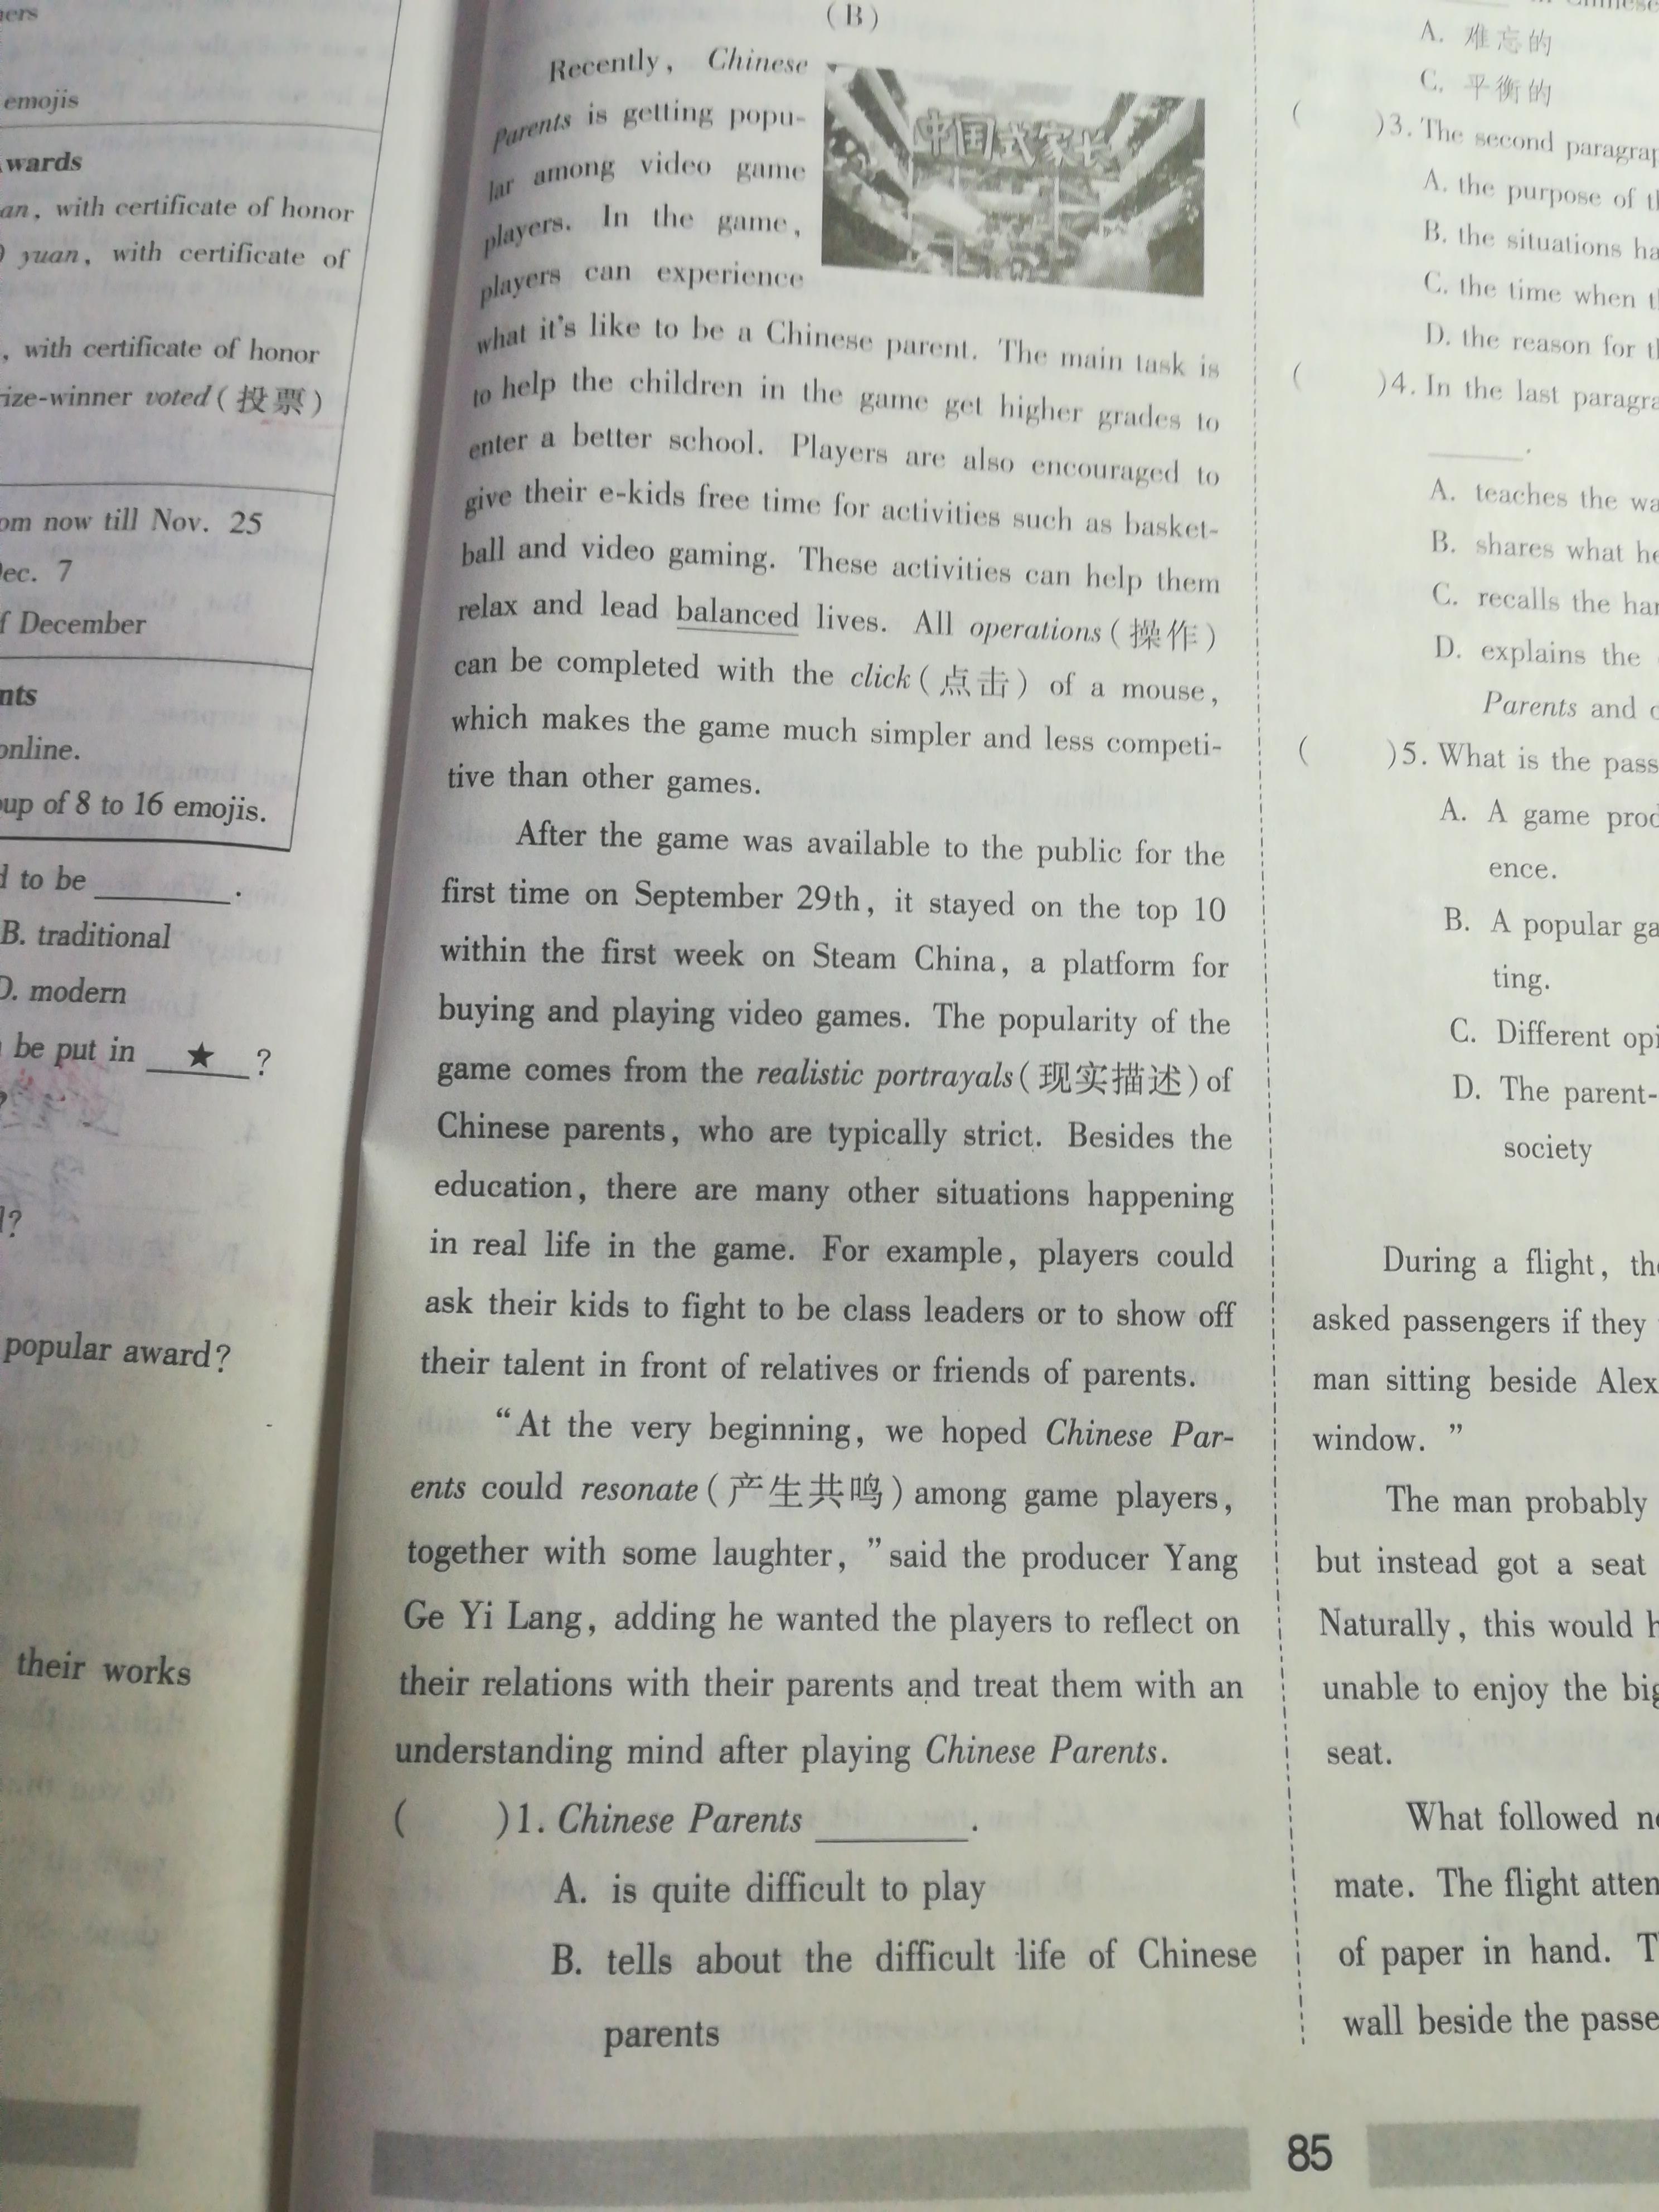 emojis
wards
an, with certificate of honor
yuan, with certificate of
, with certificate of honor
ize-winner voted(投票)
om now till Nov. 25
ec. 7
f December
nts
online.
oup of 8 to 16 emojis.
to be ______.
B. traditional
D. modern
be put in ★ ?
?
popular award?
their works
(B)
Recently, Chinese
Parents is getting popu-
lar among video game
players. In the game,
players can experience
中国式家长
what it's like to be a Chinese parent. The main task is
to help the children in the game get higher grades to
enter a better school. Players are also encouraged to
give their e-kids free time for activities such as basket-
ball and video gaming. These activities can help them
relax and lead balanced lives. All operations(操作)
can be completed with the click(点击) of a mouse,
which makes the game much simpler and less competi-
tive than other games.
After the game was available to the public for the
first time on September 29th, it stayed on the top 10
within the first week on Steam China, a platform for
buying and playing video games. The popularity of the
game comes from the realistic portrayals(现实描述)of
Chinese parents, who are typically strict. Besides the
education, there are many other situations happening
in real life in the game. For example, players could
ask their kids to fight to be class leaders or to show off
their talent in front of relatives or friends of parents.
"At the very beginning, we hoped Chinese Par-
ents could resonate(产生共鸣)among game players,
together with some laughter, "said the producer Yang
Ge Yi Lang, adding he wanted the players to reflect on
their relations with their parents and treat them with an
understanding mind after playing Chinese Parents.
( )1. Chinese Parents ______.
A. is quite difficult to play
B. tells about the difficult life of Chinese
parents
A. 难忘的
C. 平衡的
( )3. The second paragrap
A. the purpose of t
B. the situations ha
C. the time when t
D. the reason for t
( )4. In the last paragra
______.
A. teaches the wa
B. shares what he
C. recalls the har
D. explains the
Parents and
( )5. What is the pass
A. A game prod
ence.
B. A popular ga
ting.
C. Different opi
D. The parent-
society
During a flight, the
asked passengers if they
man sitting beside Alex
window. "
The man probably
but instead got a seat
Naturally, this would h
unable to enjoy the big
seat.
What followed n
mate. The flight atten
of paper in hand. T
wall beside the passe
85